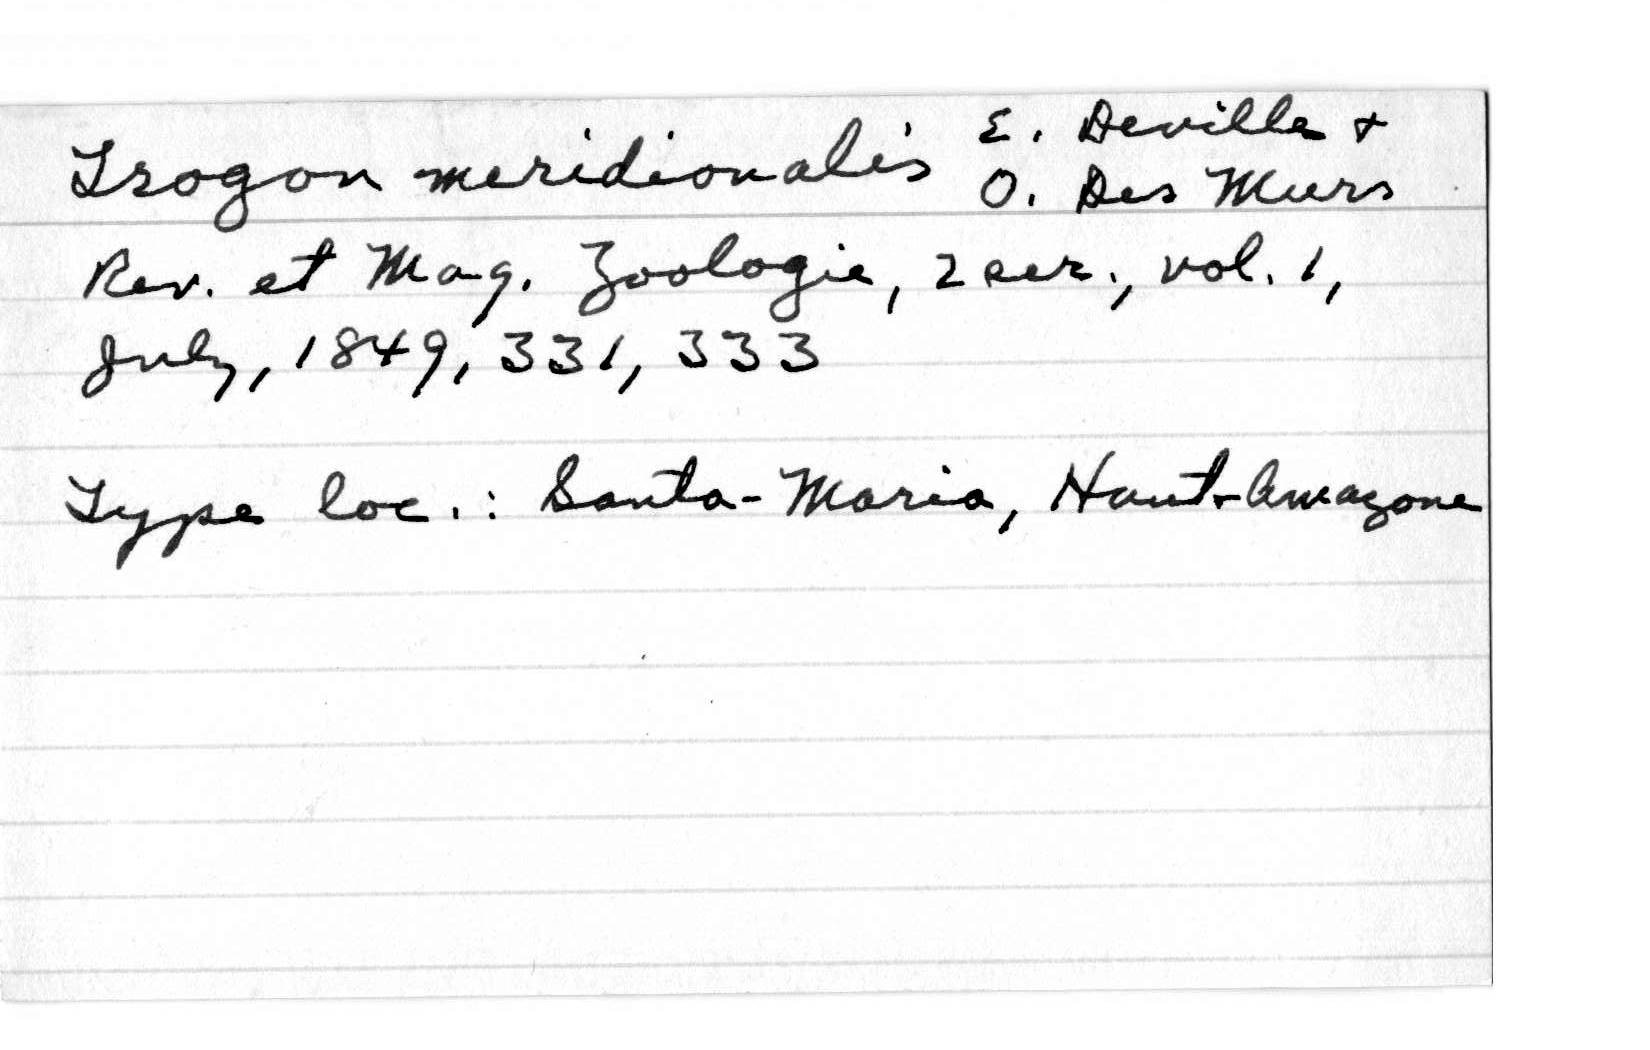 Trogon meridionalis E. Deville &
O. Des Murs
Rev. et Mag. Zoologie, 2 ser., vol. 1,
July, 1849, 331, 333
Type loc.: Santa-Maria, Haut-Amazone